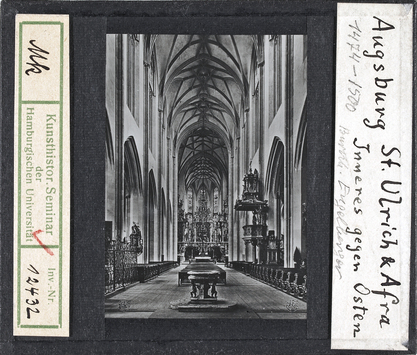 Mk
Kunsthistor. Seminar
der
Hamburgischen Universität
Inv.-Nr.
12432
Augsburg St. Ulrich & Afra
1474–1500 Inneres gegen Osten